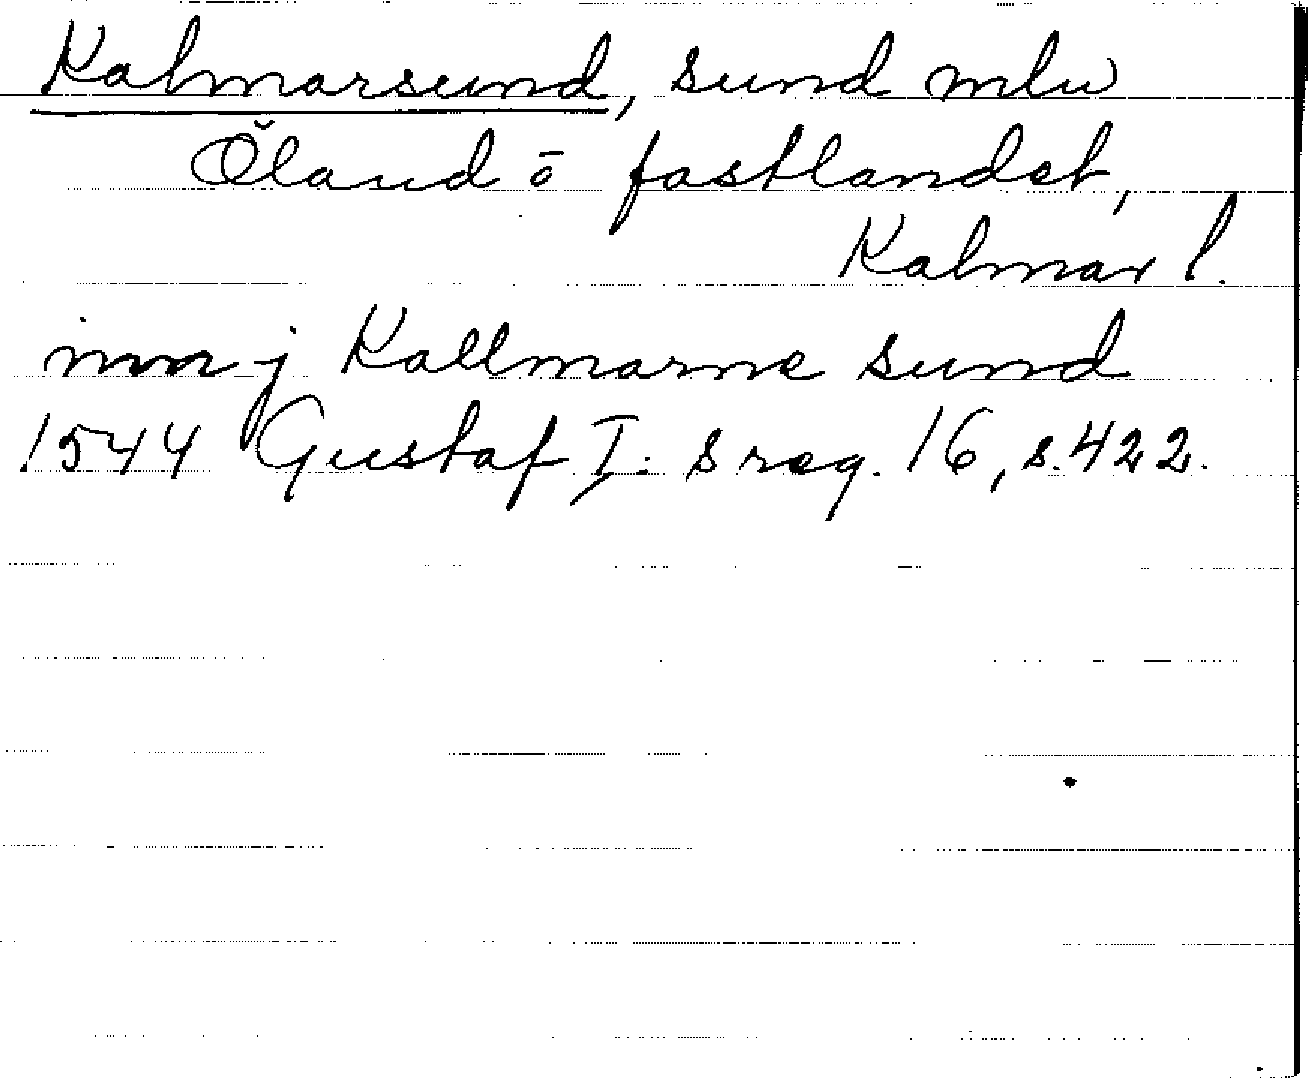 Kalmarsund, sund mlw
Öland ō fastlandet,
Kalmar l.
inn j Kallmarne sund
1544 Gustaf I: s reg. 16, s. 422.